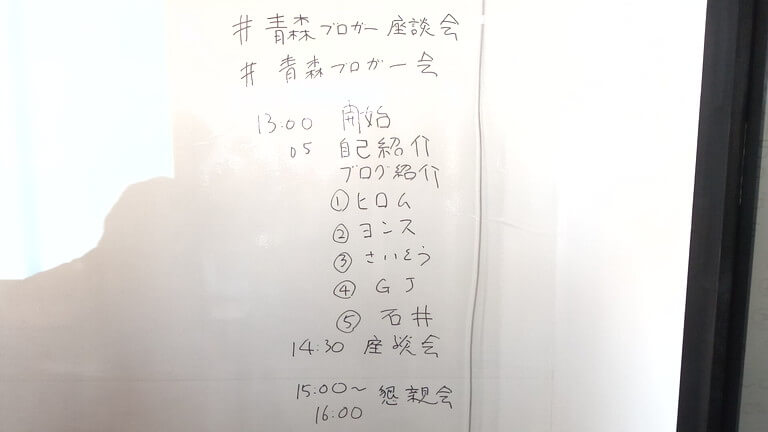 # 青森ブロガー座談会
# 青森ブロガー会
13:00 開始
05 自己紹介
ブログ紹介
① ヒロム
② ヨンス
③ さいとう
④ GJ
⑤ 石井
14:30 座談会
15:00〜 懇親会
16:00